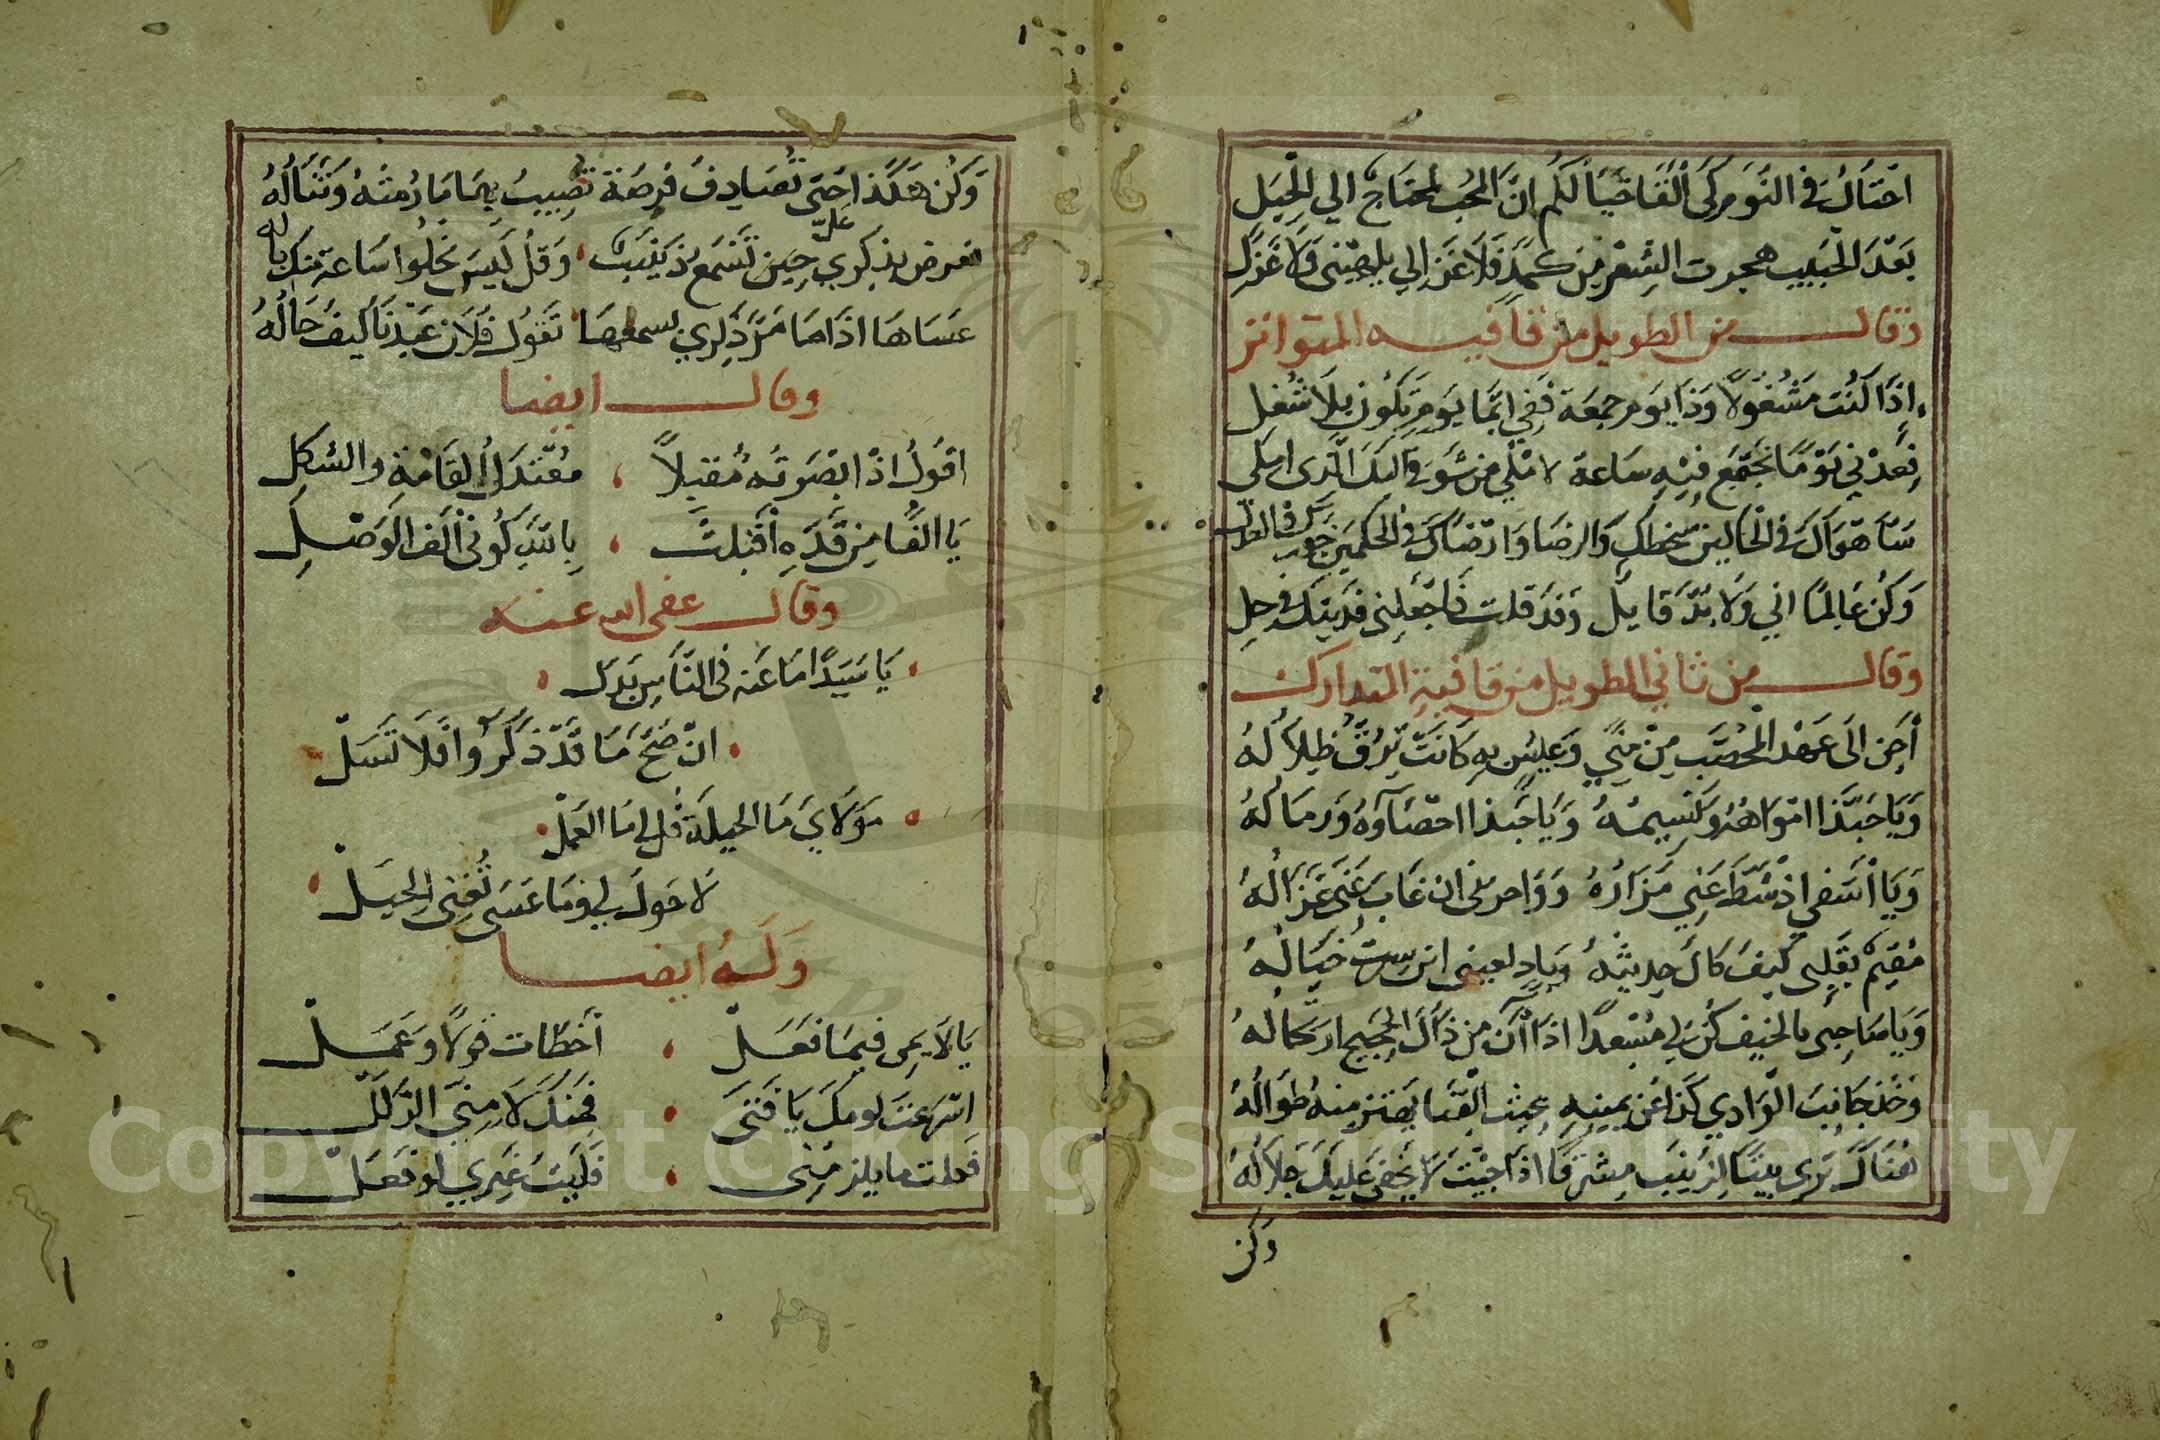 احْتَالُ في النَّوم كَى أَلْقَا خَيَالَكُم انَّ المحُب لمحتَاجٌ الي الحِيَل
بَعْدَ الحَبيب هجرت الشِعْر مِن كمدٍ فَلَا غَزَالِي يلهيني وَلَا غَزَل
وقال من الطويل من قافيه المتواتر
إِذَا كُنْت مَشْغُولاً وَذَا يَوم جمعَة فَفِي ايمَّا يَومٍ تكُون بِلَا شُغل
فَعِدْني يَوْمًا نجْتمع فيْهِ سَاعة لامْلي من شَوقي اليَكَ الَّذى املى
سَاهوَاكَ في الحَالين سخطكِ وَالرضَا وَارْضَاكَ في الحكمَين جَورك والعدل
وَكُن عَالِمًا اني وَلَا بُدَّ قايل وَقَد قلت فَاجْعَلني فديتك في حل
وقال من ثاني الطويل من قافية المتدارك
أَحِن الَى عَهْد المُحَصَّب مِنْ مِنًي وَعيْش بِهِ كَانَتْ تَرُفُّ ظِلَالُهُ
وَيَا حَبَّذَا امْوَاهُهُ وَنَسِيمُهُ وَيَا حَبَّذا احصَاوهُ وَرمَالُهُ
وَيَا أسَفي اذْ شَطَّ عَنِي مَزَارُهُ وَوَاحربي ان غَابَ عَنِّي غَزَالُهُ
مُقِيْمٌ بقَلبي كَيْفَ كَانَ حديثهُ وبادٍ لعيني ان سرت خيَالُهُ
وَيَا صَاحِبي بالخيف كُن لي مُسْعِداً اذَا آنَ من ذَاكَ الحَجيج ارتحالُهُ
وَخُذ جَانِبَ الوَادي كَذا عَن يمينِهِ بحيث القَنَا يهتز منهُ طوَالُهُ
هُنَاكَ تَرى بيتًا لِزَينَبَ مشرقًا اذَا جئْتَ لَا يخفَى عَليكَ جَلَالُهُ
وَكن
وَكُن هَكَذا حَتى تُصَادِف فرصَة تُصِيبُ بِهَا مَا رُمْتُهُ وَتَنَالُهُ
فعرض بذكري حِين تَسْمَع زَيْنَبٌ وَقُل لَيسَ يَخْلُوا سَاعة مِنكِ بالُه
عَسَاهَا اذَا مَا مَرَّ ذِكري بسمعهَا تَقول فُلَان عندَنَا كَيفَ حَالُهُ
وقال ايضا
اقوُلُ اذْ ابْصَرتُه مُقبلاً مُعْتَدلُ القَامَةِ والشكل
يَا الفًا مِن قَدهِ أقبَلت باللَّهِ كُوني أَلف الوَصْلِ
وقال عفى الله عنه
يَا سَيِّدًا مَا عَنه في النَّاس بَدَل
انْ صَحَّ مَا قَدْ ذَكَرُوا فَلَا تَسَلْ
مَولَايَ مَا الحيلَة قُل لي مَا العَمَلْ
لَا حَولَ لِي وَمَا عَسَى تُغْني الحِيَلْ
وَلَهُ ايضا
يَا لَايمِي فيمَا فَعَلْ أَخْطَات قَولًا وَعَمَلْ
اسْرَعْتَ لومكَ يَا فَتَى فَمِنكَ لَا مِنّي الزَّلَلْ
فَعلت ما يلزمني فَلَيتَ غَيري لَو فَعَلْ